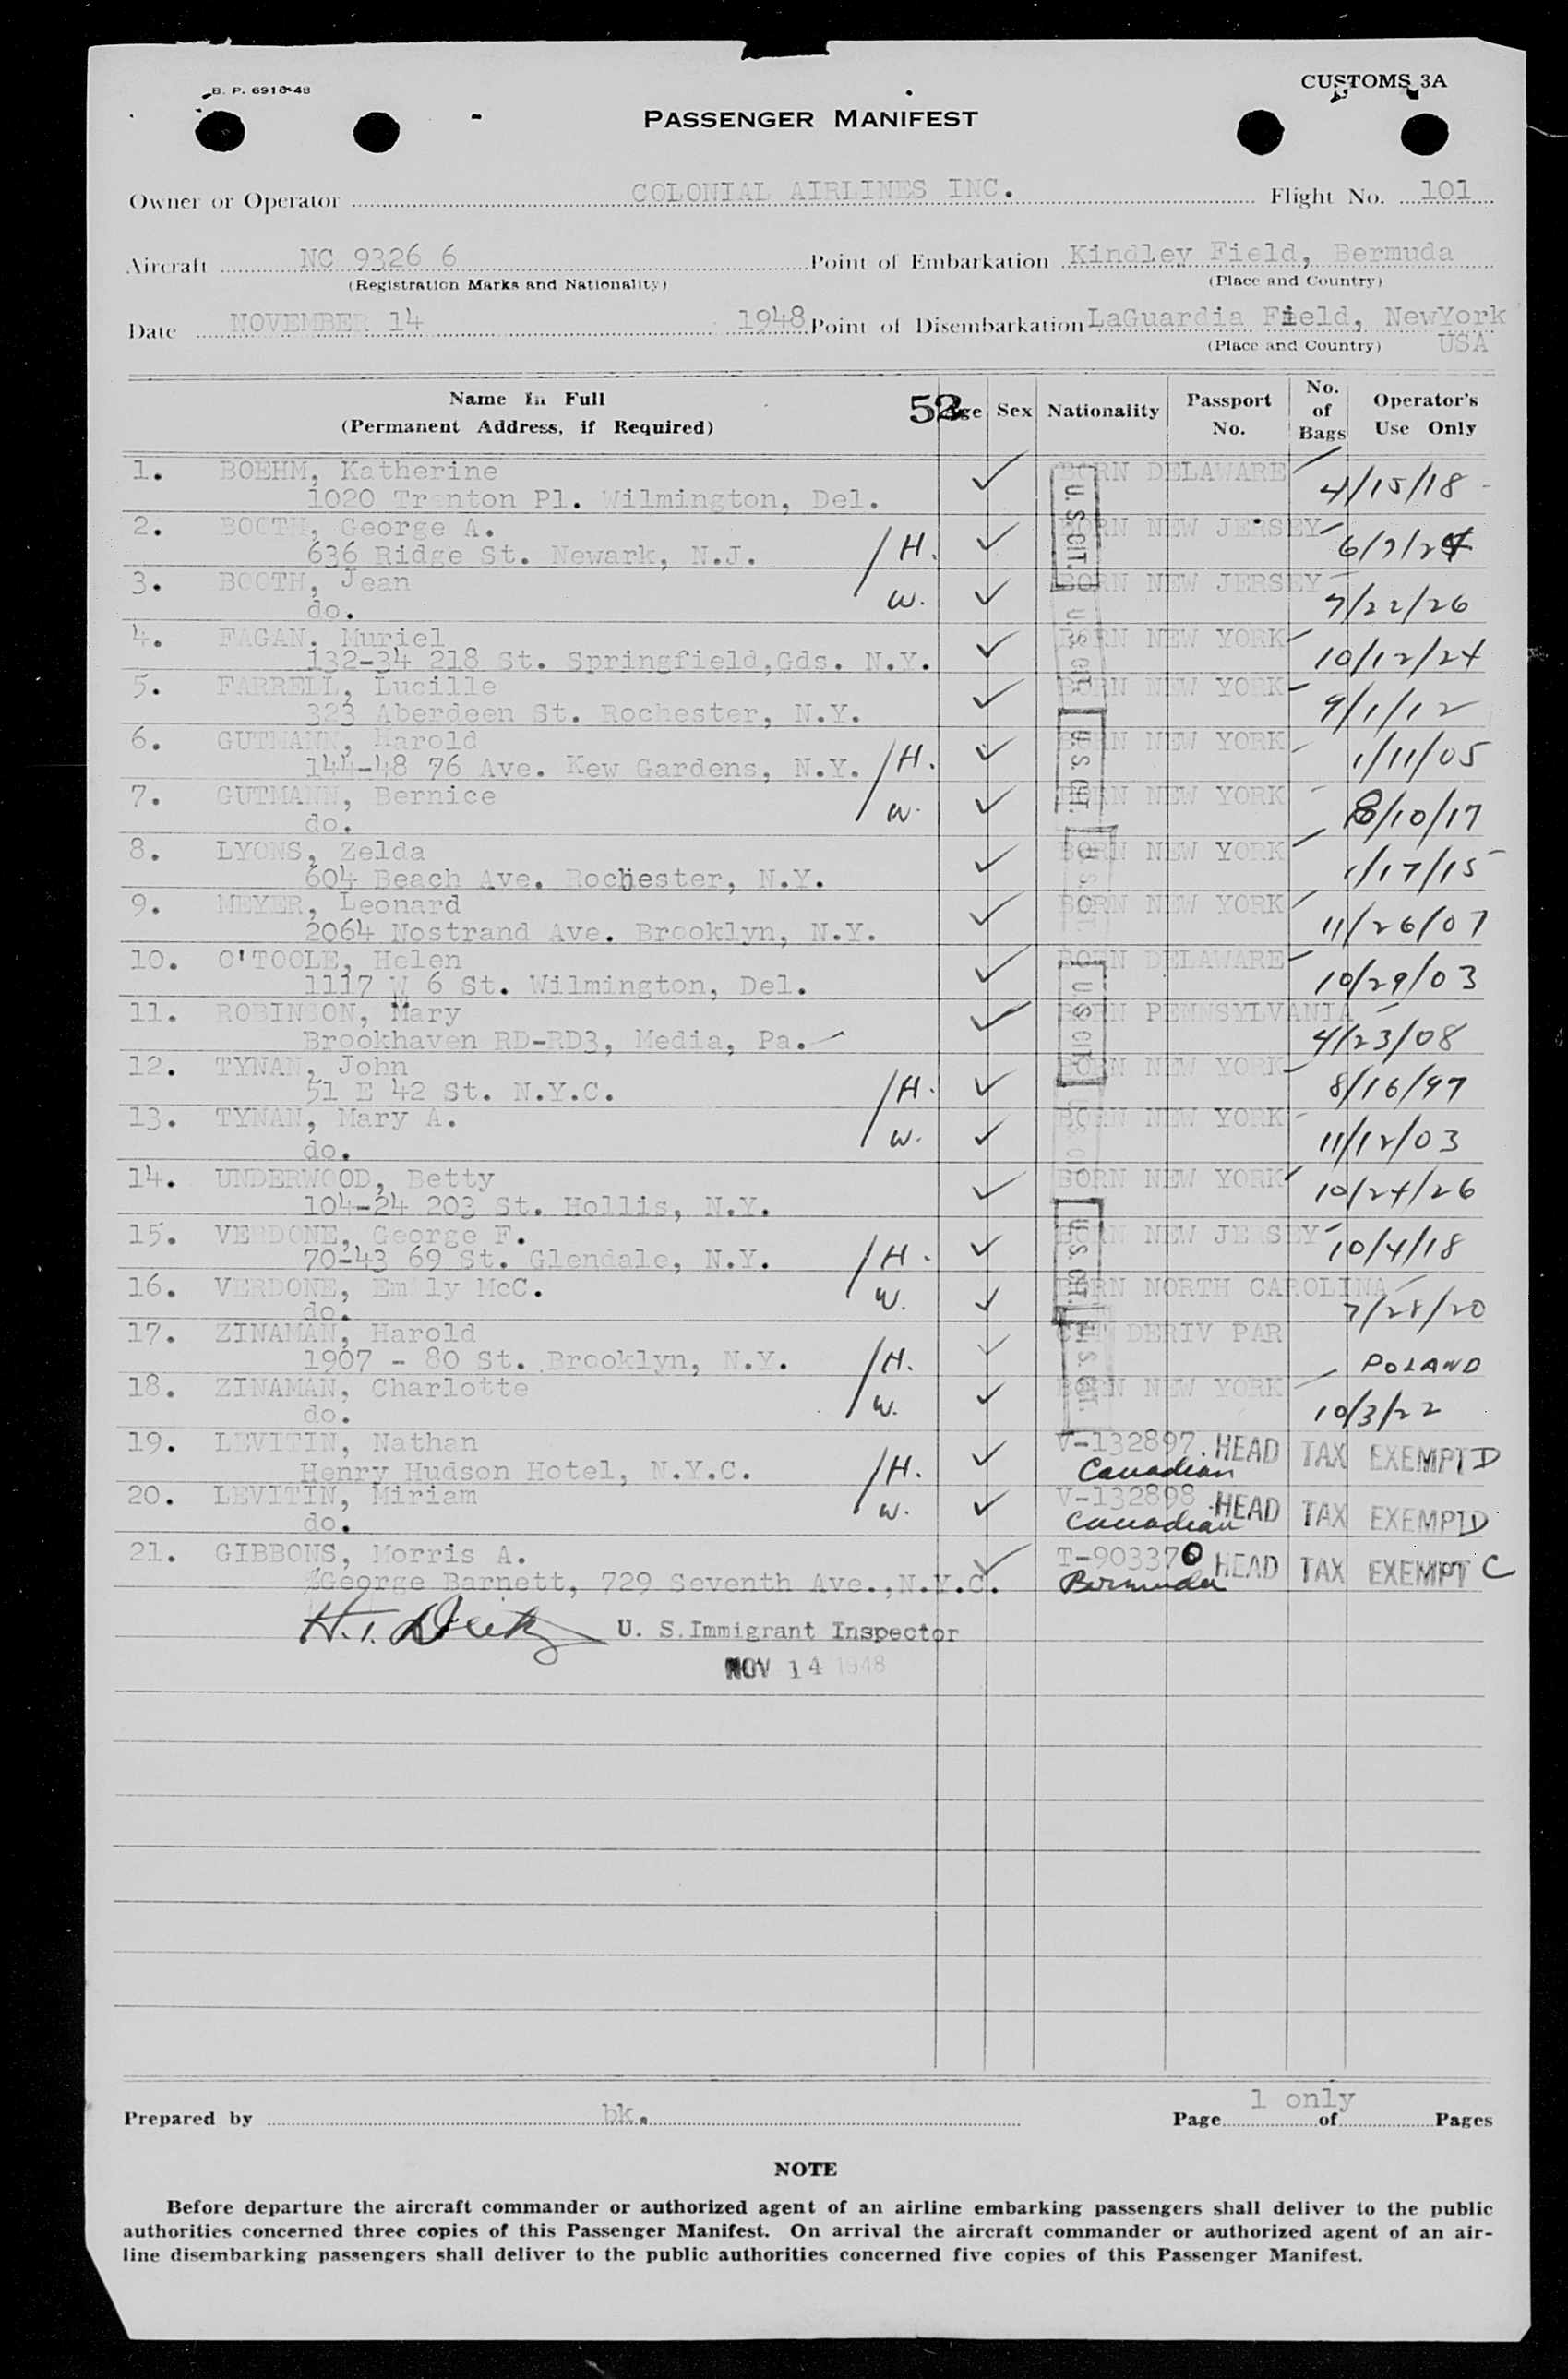 B. P. 6910-48
CUSTOMS 3A
PASSENGER MANIFEST
Owner or Operator COLONIAL AIRLINES INC. Flight No. 101
Aircraft NC 9326 6 Point of Embarkation Kindley Field, Bermuda
(Registration Marks and Nationality) (Place and Country)
Date NOVEMBER 14 1948 Point of Disembarkation LaGuardia Field, NewYork
(Place and Country) USA
Name In Full (Permanent Address, if Required) 52 Age Sex Nationality Passport No. No. of Bags Operator's Use Only
1. BOEHM, Katherine BORN DELAWARE
1020 Trenton Pl. Wilmington, Del. 4/15/18
2. BOOTH, George A. BORN NEW JERSEY
636 Ridge St. Newark, N.J. H. 6/7/24
3. BOOTH, Jean BORN NEW JERSEY
do. W. 7/22/26
4. FAGAN, Muriel BORN NEW YORK
132-34 218 St. Springfield,Gds. N.Y. 10/12/24
5. FARRELL, Lucille BORN NEW YORK
323 Aberdeen St. Rochester, N.Y. 9/1/12
6. GUTMANN, Harold BORN NEW YORK
144-48 76 Ave. Kew Gardens, N.Y. H. 1/11/05
7. GUTMANN, Bernice BORN NEW YORK
do. W. 8/10/17
8. LYONS, Zelda BORN NEW YORK
604 Beach Ave. Rochester, N.Y. 1/17/15
9. MEYER, Leonard BORN NEW YORK
2064 Nostrand Ave. Brooklyn, N.Y. 11/26/07
10. O'TOOLE, Helen BORN DELAWARE
1117 W 6 St. Wilmington, Del. 10/29/03
11. ROBINSON, Mary BORN PENNSYLVANIA
Brookhaven RD-RD3, Media, Pa. 4/23/08
12. TYNAN, John BORN NEW YORK
51 E 42 St. N.Y.C. H. 8/16/97
13. TYNAN, Mary A. BORN NEW YORK
do. W. 11/12/03
14. UNDERWOOD, Betty BORN NEW YORK
104-24 203 St. Hollis, N.Y. 10/24/26
15. VERDONE, George F. BORN NEW JERSEY
70-43 69 St. Glendale, N.Y. H. 10/4/18
16. VERDONE, Emily McC. BORN NORTH CAROLINA
do. W. 7/28/20
17. ZINAMAN, Harold CIT DERIV PAR
1907 - 80 St. Brooklyn, N.Y. H. POLAND
18. ZINAMAN, Charlotte BORN NEW YORK
do. W. 10/3/22
19. LEVITIN, Nathan V-132897. HEAD TAX EXEMPT D
Henry Hudson Hotel, N.Y.C. H. Canadian
20. LEVITIN, Miriam V-132898 .HEAD TAX EXEMPT D
do. W. Canadian
21. GIBBONS, Morris A. T-903370 HEAD TAX EXEMPT C
%George Barnett, 729 Seventh Ave.,N.Y.C. Bermuda
U. S. CIT.
U. S. CIT.
U. S. CIT.
U. S. CIT.
U. S. CIT.
U. S. CIT.
U. S. CIT.
U. S. CIT.
U. S. Immigrant Inspector
NOV 14 1948
Prepared by bk. Page 1 only of Pages
NOTE
Before departure the aircraft commander or authorized agent of an airline embarking passengers shall deliver to the public
authorities concerned three copies of this Passenger Manifest. On arrival the aircraft commander or authorized agent of an air-
line disembarking passengers shall deliver to the public authorities concerned five copies of this Passenger Manifest.